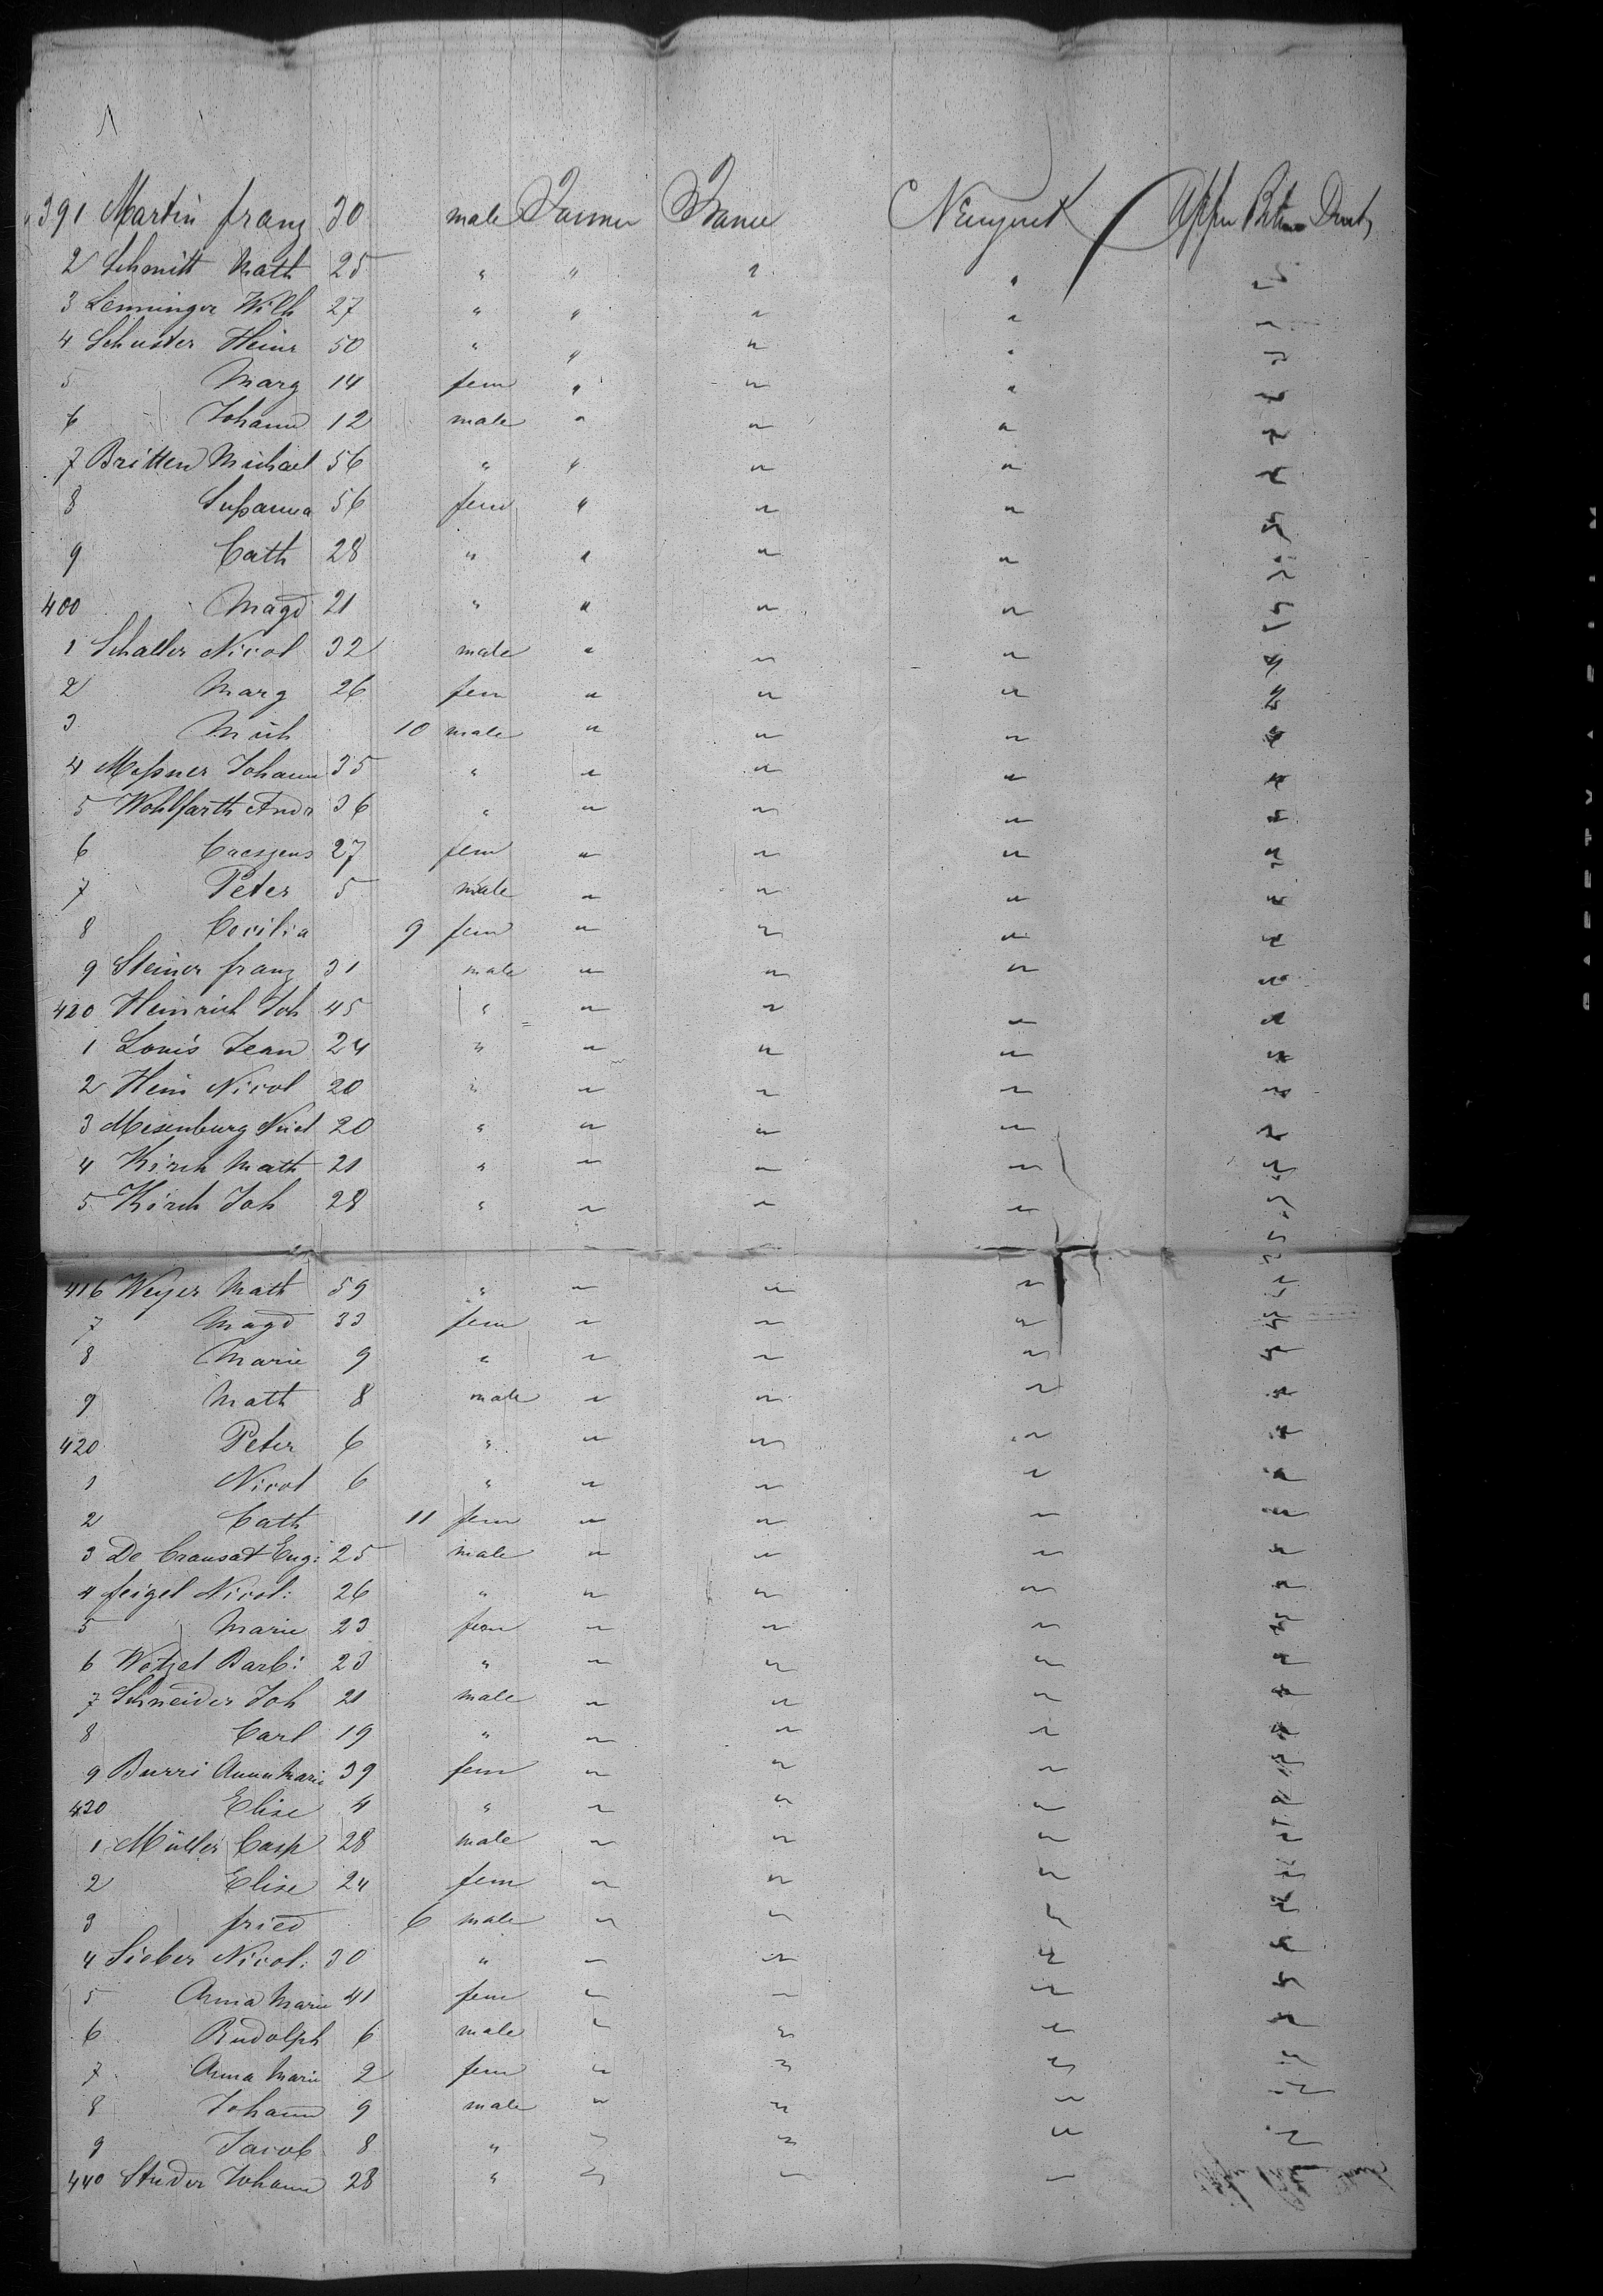 391 Martin franz 30 male Farmer France Newyork Upper Betw Deck
2 Schmitt Math 25 " " " " "
3 Lenninger Wilh 27 " " " " "
4 Schuster Heinr 50 " " " " "
5 Marg 14 fem " " " "
6 Johann 12 male " " " "
7 Britten Michael 56 " " " " "
8 Sußanna 56 fem " " " "
9 Cath 28 " " " " "
400 Magd 21 " " " " "
1 Schaller Nicol 32 male " " " "
2 Marg 26 fem " " " "
3 Mich 10 male " " " "
4 Meßner Johann 35 " " " " "
5 Wohlfarth Andr 36 " " " " "
6 Creszens 27 fem " " " "
7 Peter 5 male " " " "
8 Cecilia 9 fem " " " "
9 Steiner franz 31 male " " " "
420 Heinrich Joh 45 " " " " "
1 Louis Jean 24 " " " " "
2 Hein Nicol 20 " " " " "
3 Meisenburg Nicol 20 " " " " "
4 Kirch Math 21 " " " " "
5 Kirch Joh 28 " " " " "
416 Weyer Math 59 " " " " "
7 Magd 33 fem " " " "
8 Marie 9 " " " " "
9 Math 8 male " " " "
420 Peter 6 " " " " "
1 Nicol 6 " " " " "
2 Cath 11 fem " " " "
3 De Crausat Eug: 25 male " " " "
4 feigel Nicol: 26 " " " " "
5 Marie 23 fem " " " "
6 Wetzel Barb: 23 " " " " "
7 Schneider Joh 21 male " " " "
8 Carl 19 " " " " "
9 Burri Anna Marie 39 fem " " " "
430 Elise 4 " " " " "
1 Müller Casp 28 male " " " "
2 Elise 24 fem " " " "
3 fried 6 male " " " "
4 Sieber Nicol: 30 " " " " "
5 Anna Marie 41 fem " " " "
6 Rudolph 6 male " " " "
7 Anna Marie 2 fem " " " "
8 Johann 9 male " " " "
9 Jacob 8 " " " " "
440 Studer Johann 28 " " " "